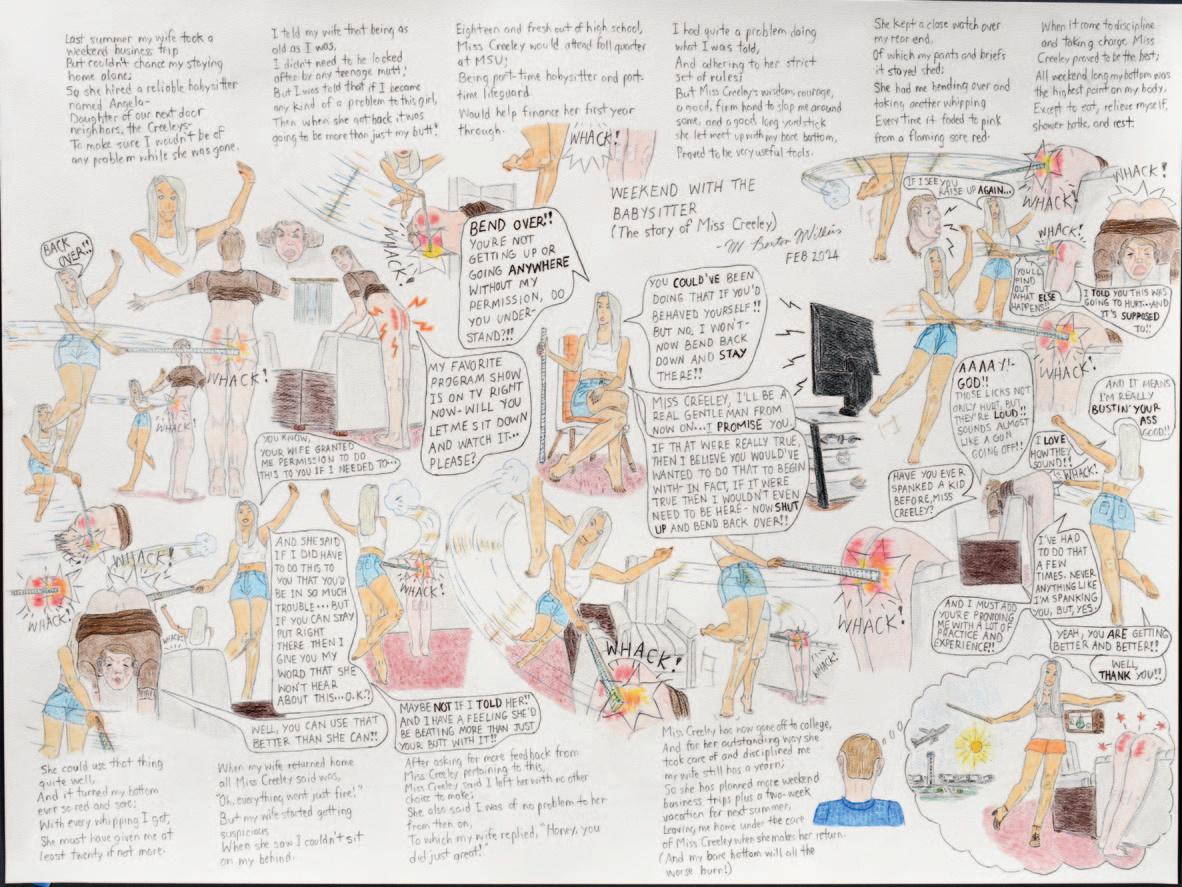 Last summer my wife took a
weekend business trip
But couldn't chance my staying
home alone;
So she hired a reliable babysitter
named Angela-
Daughter of our next door
neighbors, the Creeleys-
To make sure I wouldn't be of
any problem while she was gone.
I told my wife that being as
old as I was,
I didn't need to be looked
after by any teenage mutt!
But I was told that if I became
any kind of a problem to this girl,
Then when she got back it was
going to be more than just my butt!
Eighteen and fresh out of high school,
Miss Creeley would attend fall quarter
at MSU;
Being part-time babysitter and part-
time lifeguard
Would help finance her first year
through.
I had quite a problem doing
what I was told,
And adhering to her strict
set of rules;
But Miss Creeley's wisdom, courage,
a good, firm hand to slap me around
some, and a good long yardstick
she let meet up with my bare bottom,
Proved to be very useful tools.
She kept a close watch over
my rear end,
Of which my pants and briefs
it stayed shed;
She had me bending over and
taking another whipping
Every time it faded to pink
from a flaming sore red.
When it came to discipline
and taking charge, Miss
Creeley proved to be the best;
All weekend long my bottom was
the highest point on my body,
Except to eat, relieve myself,
shower bathe, and rest.
WEEKEND WITH THE
BABYSITTER
(The story of Miss Creeley)
FEB 2024
WHACK!
WHACK!
BACK
OVER!!
WHACK!
WHACK!
BEND OVER!!
YOU'RE NOT
GETTING UP OR
GOING ANYWHERE
WITHOUT MY
PERMISSION, DO
YOU UNDER-
STAND?!!
MY FAVORITE
PROGRAM SHOW
IS ON TV RIGHT
NOW-WILL YOU
LET ME SIT DOWN
AND WATCH IT...
PLEASE?
YOU COULD'VE BEEN
DOING THAT IF YOU'D
BEHAVED YOURSELF!!
BUT NO, I WON'T-
NOW BEND BACK
DOWN AND STAY
THERE!!
MISS CREELEY, I'LL BE A
REAL GENTLEMAN FROM
NOW ON...I PROMISE YOU.
IF THAT WERE REALLY TRUE,
THEN I BELIEVE YOU WOULD'VE
WANTED TO DO THAT TO BEGIN
WITH-IN FACT, IF IT WERE
TRUE THEN I WOULDN'T EVEN
NEED TO BE HERE-NOW SHUT
UP AND BEND BACK OVER!!
IF I SEE YOU
RAISE UP AGAIN...
WHACK!
WHACK!
WHACK!
YOU'LL
FIND
OUT
WHAT ELSE
HAPPENS!!
I TOLD YOU THIS WAS
GOING TO HURT...AND
IT'S SUPPOSED
TO!!
WHACK!
AAAAY!-
GOD!!
THOSE LICKS NOT
ONLY HURT, BUT
THEY'RE LOUD!!
SOUNDS ALMOST
LIKE A GUN
GOING OFF!!
I LOVE
HOW THEY
SOUND!!
AND IT MEANS
I'M REALLY
BUSTIN' YOUR
ASS
GOOD!!
WHACK!
HAVE YOU EVER
SPANKED A KID
BEFORE, MISS
CREELEY?
I'VE HAD
TO DO THAT
A FEW
TIMES. NEVER
ANYTHING LIKE
I'M SPANKING
YOU, BUT, YES.
AND I MUST ADD
YOU'RE PROVIDING
ME WITH A LOT OF
PRACTICE AND
EXPERIENCE!!
YEAH, YOU ARE GETTING
BETTER AND BETTER!!
WELL,
THANK YOU!!
YOU KNOW,
YOUR WIFE GRANTED
ME PERMISSION TO DO
THIS TO YOU IF I NEEDED TO...
WHACK!
WHACK!
WHACK!
WHACK!
AND SHE SAID
IF I DID HAVE
TO DO THIS TO
YOU THAT YOU'D
BE IN SO MUCH
TROUBLE...BUT
IF YOU CAN STAY
PUT RIGHT
THERE THEN I
GIVE YOU MY
WORD THAT SHE
WON'T HEAR
ABOUT THIS...O.K.?
WELL, YOU CAN USE THAT
BETTER THAN SHE CAN!!
WHACK!
MAYBE NOT IF I TOLD HER!!
AND I HAVE A FEELING SHE'D
BE BEATING MORE THAN JUST
YOUR BUTT WITH IT!!
WHACK!
WHACK!
WHACK!
She could use that thing
quite well,
And it turned my bottom
ever so red and sore;
With every whipping I got,
She must have given me at
least twenty if not more.
When my wife returned home
all Miss Creeley said was,
"Oh, everything went just fine!"
But my wife started getting
suspicious
When she saw I couldn't sit
on my behind.
After asking for more feedback from
Miss Creeley pertaining to this,
Miss Creeley said I left her with no other
choice to make;
She also said I was of no problem to her
from then on,
To which my wife replied, "Honey, you
did just great!"
Miss Creeley has now gone off to college,
And for her outstanding way she
took care of and disciplined me
my wife still has a yearn;
So she has planned more weekend
business trips plus a two-week
vacation for next summer,
Leaving me home under the care
of Miss Creeley when she makes her return.
(And my bare bottom will all the
worse burn!)